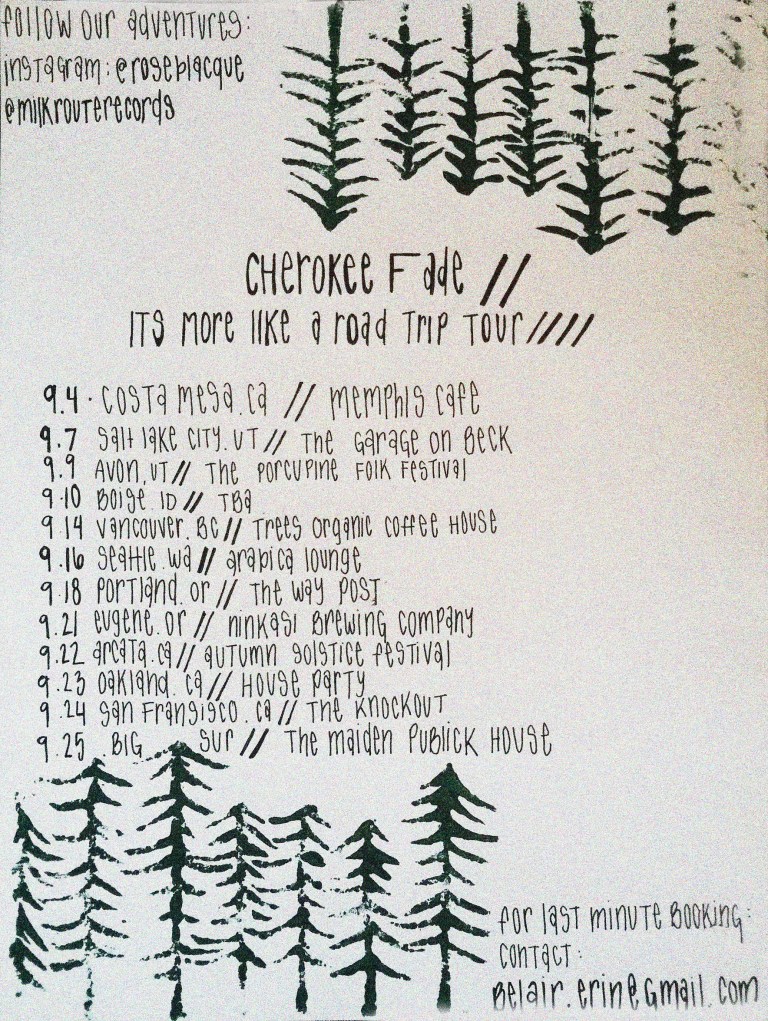 follow our adventures:
instagram: @roseblacque
@milkrouterecords
Cherokee Fade //
ITS more like a road Trip Tour////
9.4 · Costa Mesa. Ca // Memphis Cafe
9.7 Salt lake City. UT // The Garage on Beck
9.9 Avon, UT // The Porcupine Folk Festival
9.10 Boise. ID // TBA
9.14 Vancouver. BC // Trees Organic Coffee House
9.16 Seattle. Wa // arabica lounge
9.18 Portland. or // The Way Post
9.21 eugene. or // ninkasi Brewing Company
9.22 arcata. ca // autumn Solstice festival
9.23 Oakland. Ca // House Party
9.24 San Fransisco. ca // The Knockout
9.25 . BIG Sur // The Maiden Publick House
for last minute booking:
contact:
Belair.erin@Gmail.com